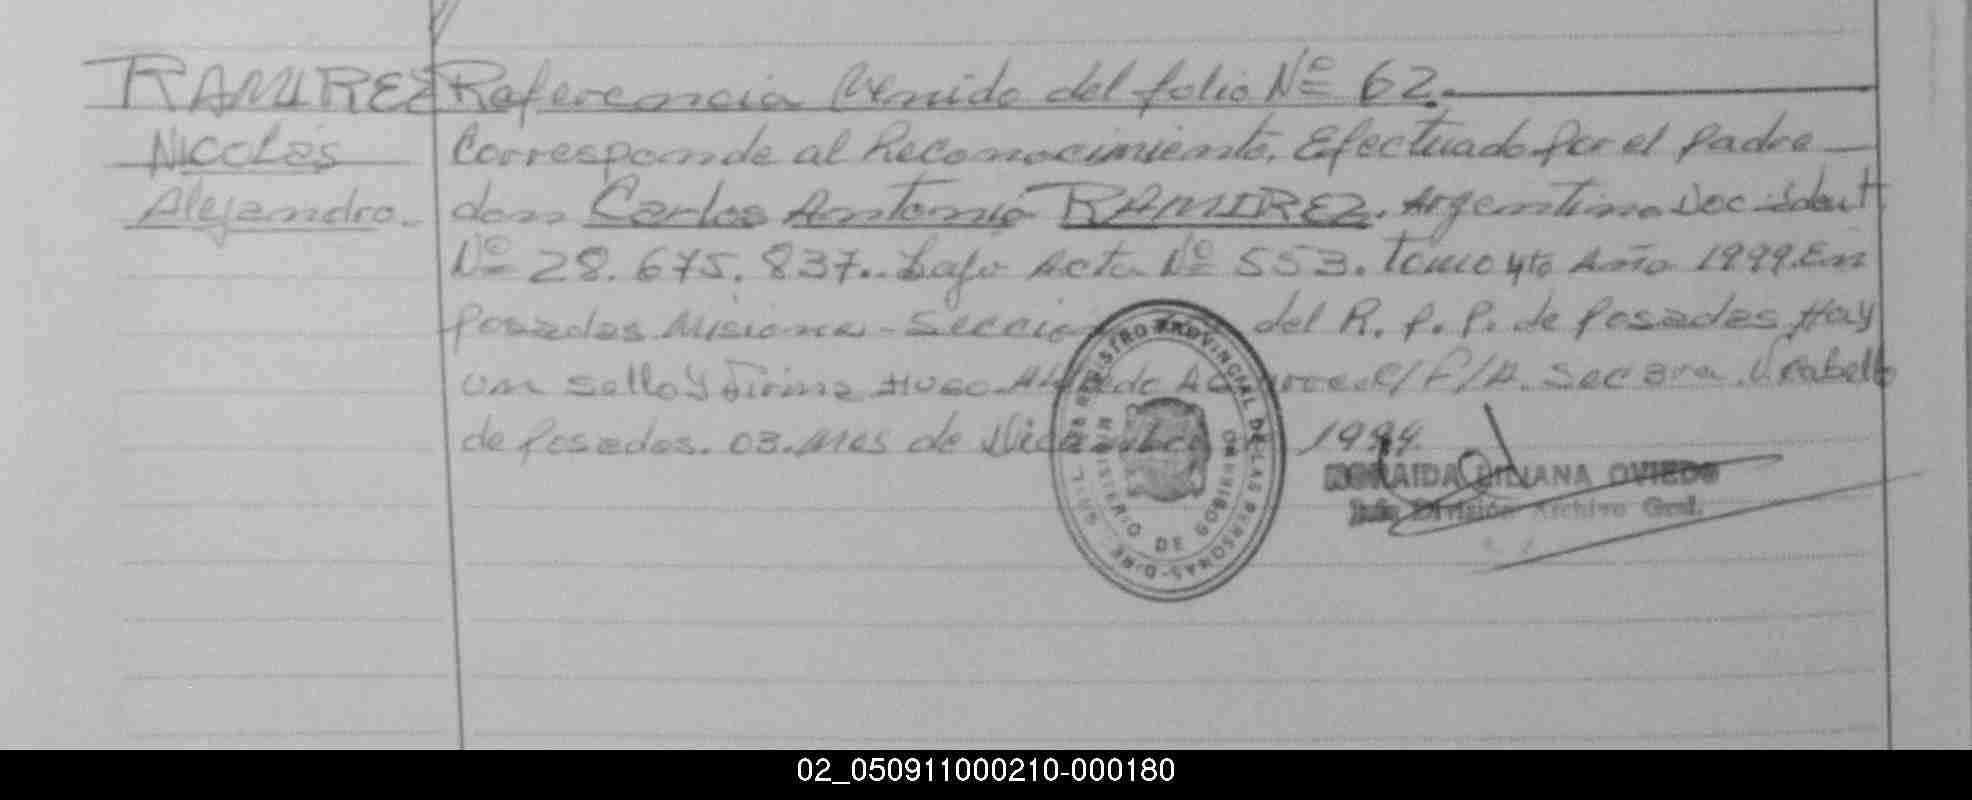 RAMIREZ Referencia Venido del folio Nº 62.
Nicolás Corresponde al Reconocimiento. Efectuado por el padre
Alejandro. don Carlos Antonio RAMIREZ. Argentino Doc. Ident
Nº 28.675.837.. bajo Acta Nº 553. Tomo 4to Año 1999. En
Posadas Misiones - Sección del R. P. P. de Posadas Hay
un sello y Firma Hugo de
de Posadas. 03. Mes de Diciembre 1999.
REGISTRO PROVINCIAL DE LAS PERSONAS
MINISTERIO DE GOBIERNO
LILIANA OVIEDO
Jefe División Archivo Gral.
02_050911000210-000180